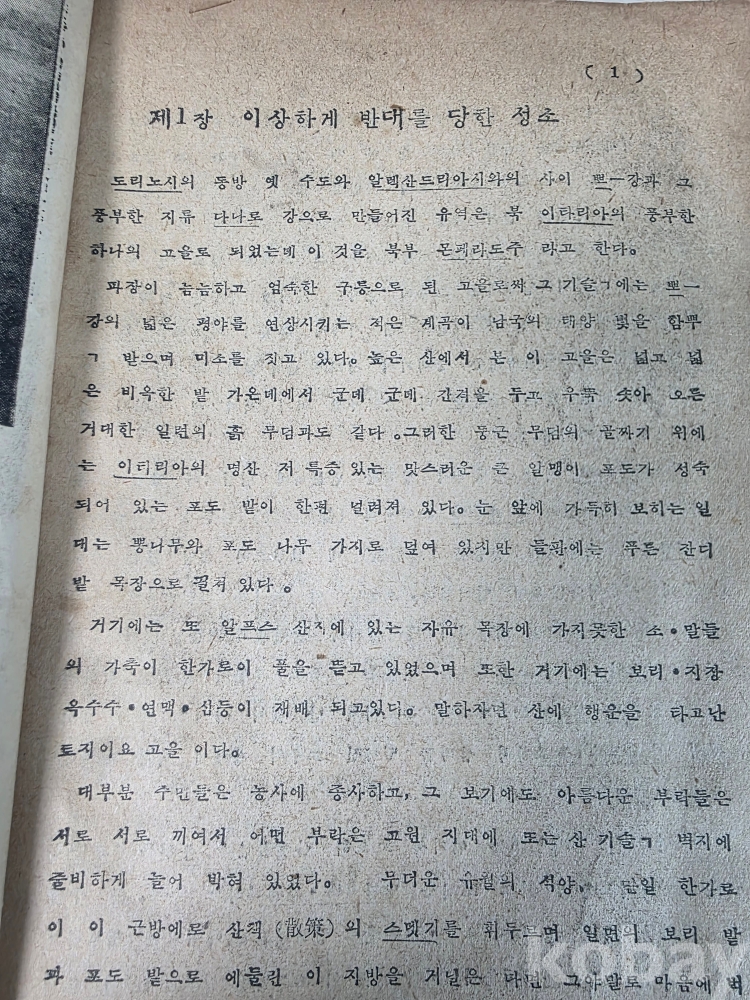 ( 1 )
제1장 이상하게 반대를 당한 성소
도리노시의 동방 옛 수도와 알렉산드리아시와의 사이 뽀ー강과 그
풍부한 지류 다나로 강으로 만들어진 유역은 북 이타리아의 풍부한
하나의 고을로 되었는데 이 것을 북부 몬페라도주 라고 한다。
파장이 늠늠하고 엄숙한 구릉으로 된 고을로써 그 기슭ㄱ에는 뽀ー
강의 넓은 평야를 연상시키는 적은 계곡이 남국의 태양 빛을 함뿌
ㄱ 받으며 미소를 짓고 있다。높은 산에서 본 이 고을은 넓고 넓
은 비옥한 밭 가온데에서 군데 군데 간격을 두고 우뚝 솟아 오른
거대한 일련의 흙 무덤과도 같다。그러한 둥근 무덤의 골짜기 위에
는 이티리아의 명산 저 특증 있는 맛스러운 큰 알맹이 포도가 성숙
되어 있는 포도 밭이 한편 널려져 있다。눈 앞에 가득히 보히는 일
대는 뽕나무와 포도 나무 가지로 덮여 있지만 들판에는 푸른 잔디
밭 목장으로 펼쳐 있다。
거기에는 또 알프스 산지에 있는 자유 목장에 가지못한 소・말들
의 가축이 한가로이 풀을 뜯고 있었으며 또한 거기에는 보리・지장
옥수수・연맥・삼등이 재배 되고있다。말하자면 산에 행운을 타고난
토지이요 고을 이다。
대부분 주민들은 농사에 종사하고, 그 보기에도 아름다운 부락들은
서로 서로 끼여서 어떤 부락은 고원 지대에 또는 산 기슭ㄱ 벽지에
즐비하게 늘어 박혀 있었다。 무더운 유월의 석양, 만일 한가로
이 이 근방에로 산책(散策)의 스띡기를 휘두르며 일면의 보리 밭
과 포도 밭으로 에둘린 이 지방을 거닐은 다면 그야말로 마음에 벅
kobay